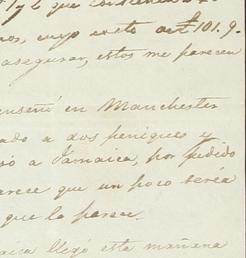 y lo que
nos, cuyo exito £101.9.
asegurar, estos me parecen
enseñé en Manchester
ado a dos peniques y
só a Jamaica, por pedido
arece que un poco sería
que la parece.
aica llegó esta mañana